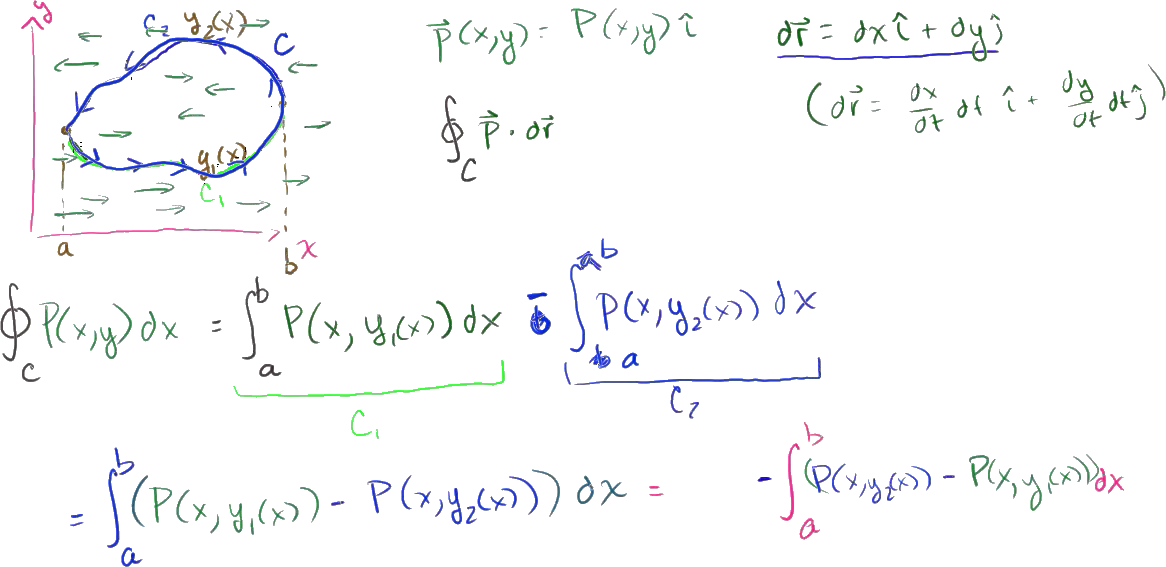 y
C₂ y₂(x)
C
y₁(x)
C₁
a
b
x
p⃗(x,y) = P(x,y) î
dr⃗ = dx î + dy ĵ
(dr⃗ = dx/dt dt î + dy/dt dt ĵ)
∮_C p⃗ · dr⃗
∮_C P(x,y) dx = ∫_a^b P(x, y₁(x)) dx - ∫_a^b P(x, y₂(x)) dx
C₁
C₂
= ∫_a^b (P(x, y₁(x)) - P(x, y₂(x))) dx = - ∫_a^b (P(x, y₂(x)) - P(x, y₁(x))) dx